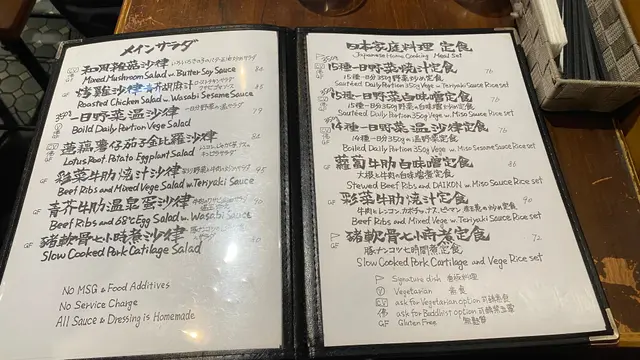 メインサラダ
和風雜菜沙律
Mixed Mushroom Salad w. Butter Soy Sauce
燒雞沙律 青芥胡麻汁
Roasted Chicken Salad w. Wasabi Sesame Sauce
一日野菜温沙律
Boild Daily Portion Vege Salad
79
蓮藕薯仔茄子金比羅沙律
Lotus Root Potato Eggplant Salad
彩菜牛肋燒汁沙律
Beef Ribs and Mixed Vege Salad w. Teriyaki Sauce
95
青芥牛肋温泉蛋沙律
Beef Ribs and 68℃ Egg Salad w. Wasabi Sauce
豬軟骨七小時煮沙律
Slow Cooked Pork Catilage Salad
No MSG & Food Additives
No Service Charge
All Sauce & Dressing is Homemade
日本家庭料理 定食
Japanese Home Cooking Meal Set
15種一日野菜燒汁定食
76
15種一日分350g野菜炒め定食
Sautéed Daily Portion 350g Vege w. Teriyaki Sauce Rice set
15種一日野菜白味噌定食
76
Sautéed Daily Portion 350g Vege w. Miso Sauce Rice set
14種一日野菜温沙律定食
76
14種一日分350g温野菜定食
Boiled Daily Portion 350g Vege w. Miso Sesame Sauce Rice set
蘿蔔牛肋白味噌定食
大根と牛肉の白味噌煮定食
Stewed Beef Ribs and DAIKON w. Miso Sauce Rice set
彩菜牛肋燒汁定食
90
Beef Ribs and Mixed Vege w. Teriyaki Sauce Rice set
豬軟骨七小時煮定食
72
豚ナンコツ七時間煮定食
Slow Cooked Pork Cartilage and Vege Rice set
Signature dish 招牌料理
V Vegetarian 素食
CV ask for Vegetarian option 可轉素食
佛 ask for Buddhist option
GF Gluten Free 無麩質